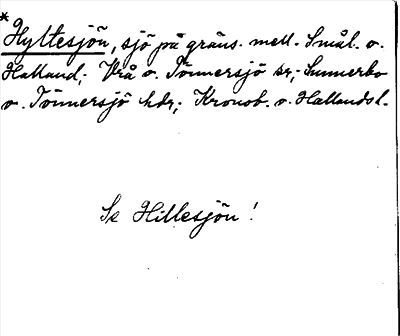 *
Hyltesjön, sjö på gräns. mell. Smål. o.
Halland; Vrå o. Tönnersjö sr; Sunnerbo
o. Tönnersjö hdr; Kronob. o. Hallandsl.
Se Hillesjön!